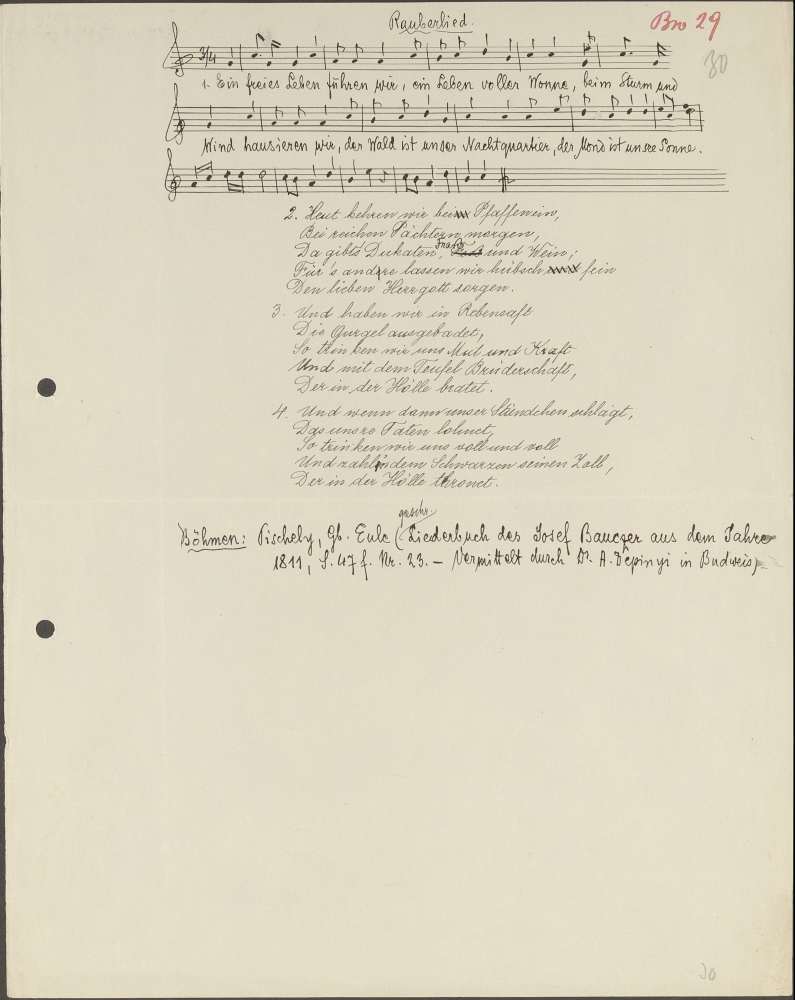 Räuberlied.
Bro 29
30
3/4
1. Ein freies Leben führen wir, ein Leben voller Wonne, beim Sturm und
Wind hausieren wir, der Wald ist unser Nachtquartier, der Mond ist unsre Sonne.
2. Heut kehren wir bei Pfaffen ein,
Bei reichen Pächtern morgen,
Da gibts Dukaten, Frass und Wein;
Für's andre lassen wir hübsch fein
Den lieben Herrgott sorgen.
3. Und haben wir in Rebensaft
Die Gurgel ausgebadet,
So trinken wir uns Mut und Kraft
Und mit dem Teufel Brüderschaft,
Der in der Hölle bratet.
4. Und wenn dann unser Stündchen schlägt,
Das unsre Taten lohnet,
So trinken wir uns voll und voll
Und zahl'n dem Schwarzen seinen Zoll,
Der in der Hölle thronet.
geschr.
Böhmen: Pischely, Gb. Eule (Liederbuch des Josef Bauczer aus dem Jahre
1811, S. 47 f. Nr. 23. – Vermittelt durch Dr. A. Dépinyi in Budweis)
30